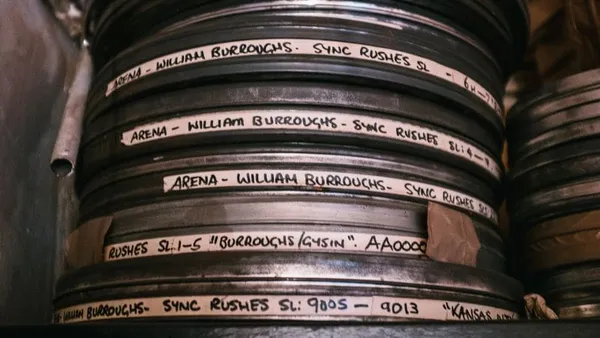 ARENA - WILLIAM BURROUGHS. SYNC RUSHES SL -
ARENA - WILLIAM BURROUGHS - SYNC RUSHES SL: 4 -
ARENA - WILLIAM BURROUGHS - SYNC RUSHES SL:
RUSHES SL: 1-5 "BURROUGHS/GYSIN". AA0000
WILLIAM BURROUGHS - SYNC RUSHES SL: 9005 - 9013 "KANSAS